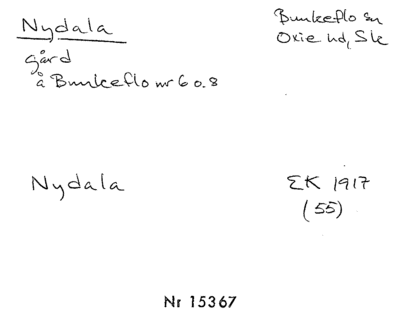 Nydala
gård
å Bunkeflo nr 6 o. 8
Bunkeflo sn
Oxie hd, Sk
Nydala
EK 1917
(55)
Nr 15367